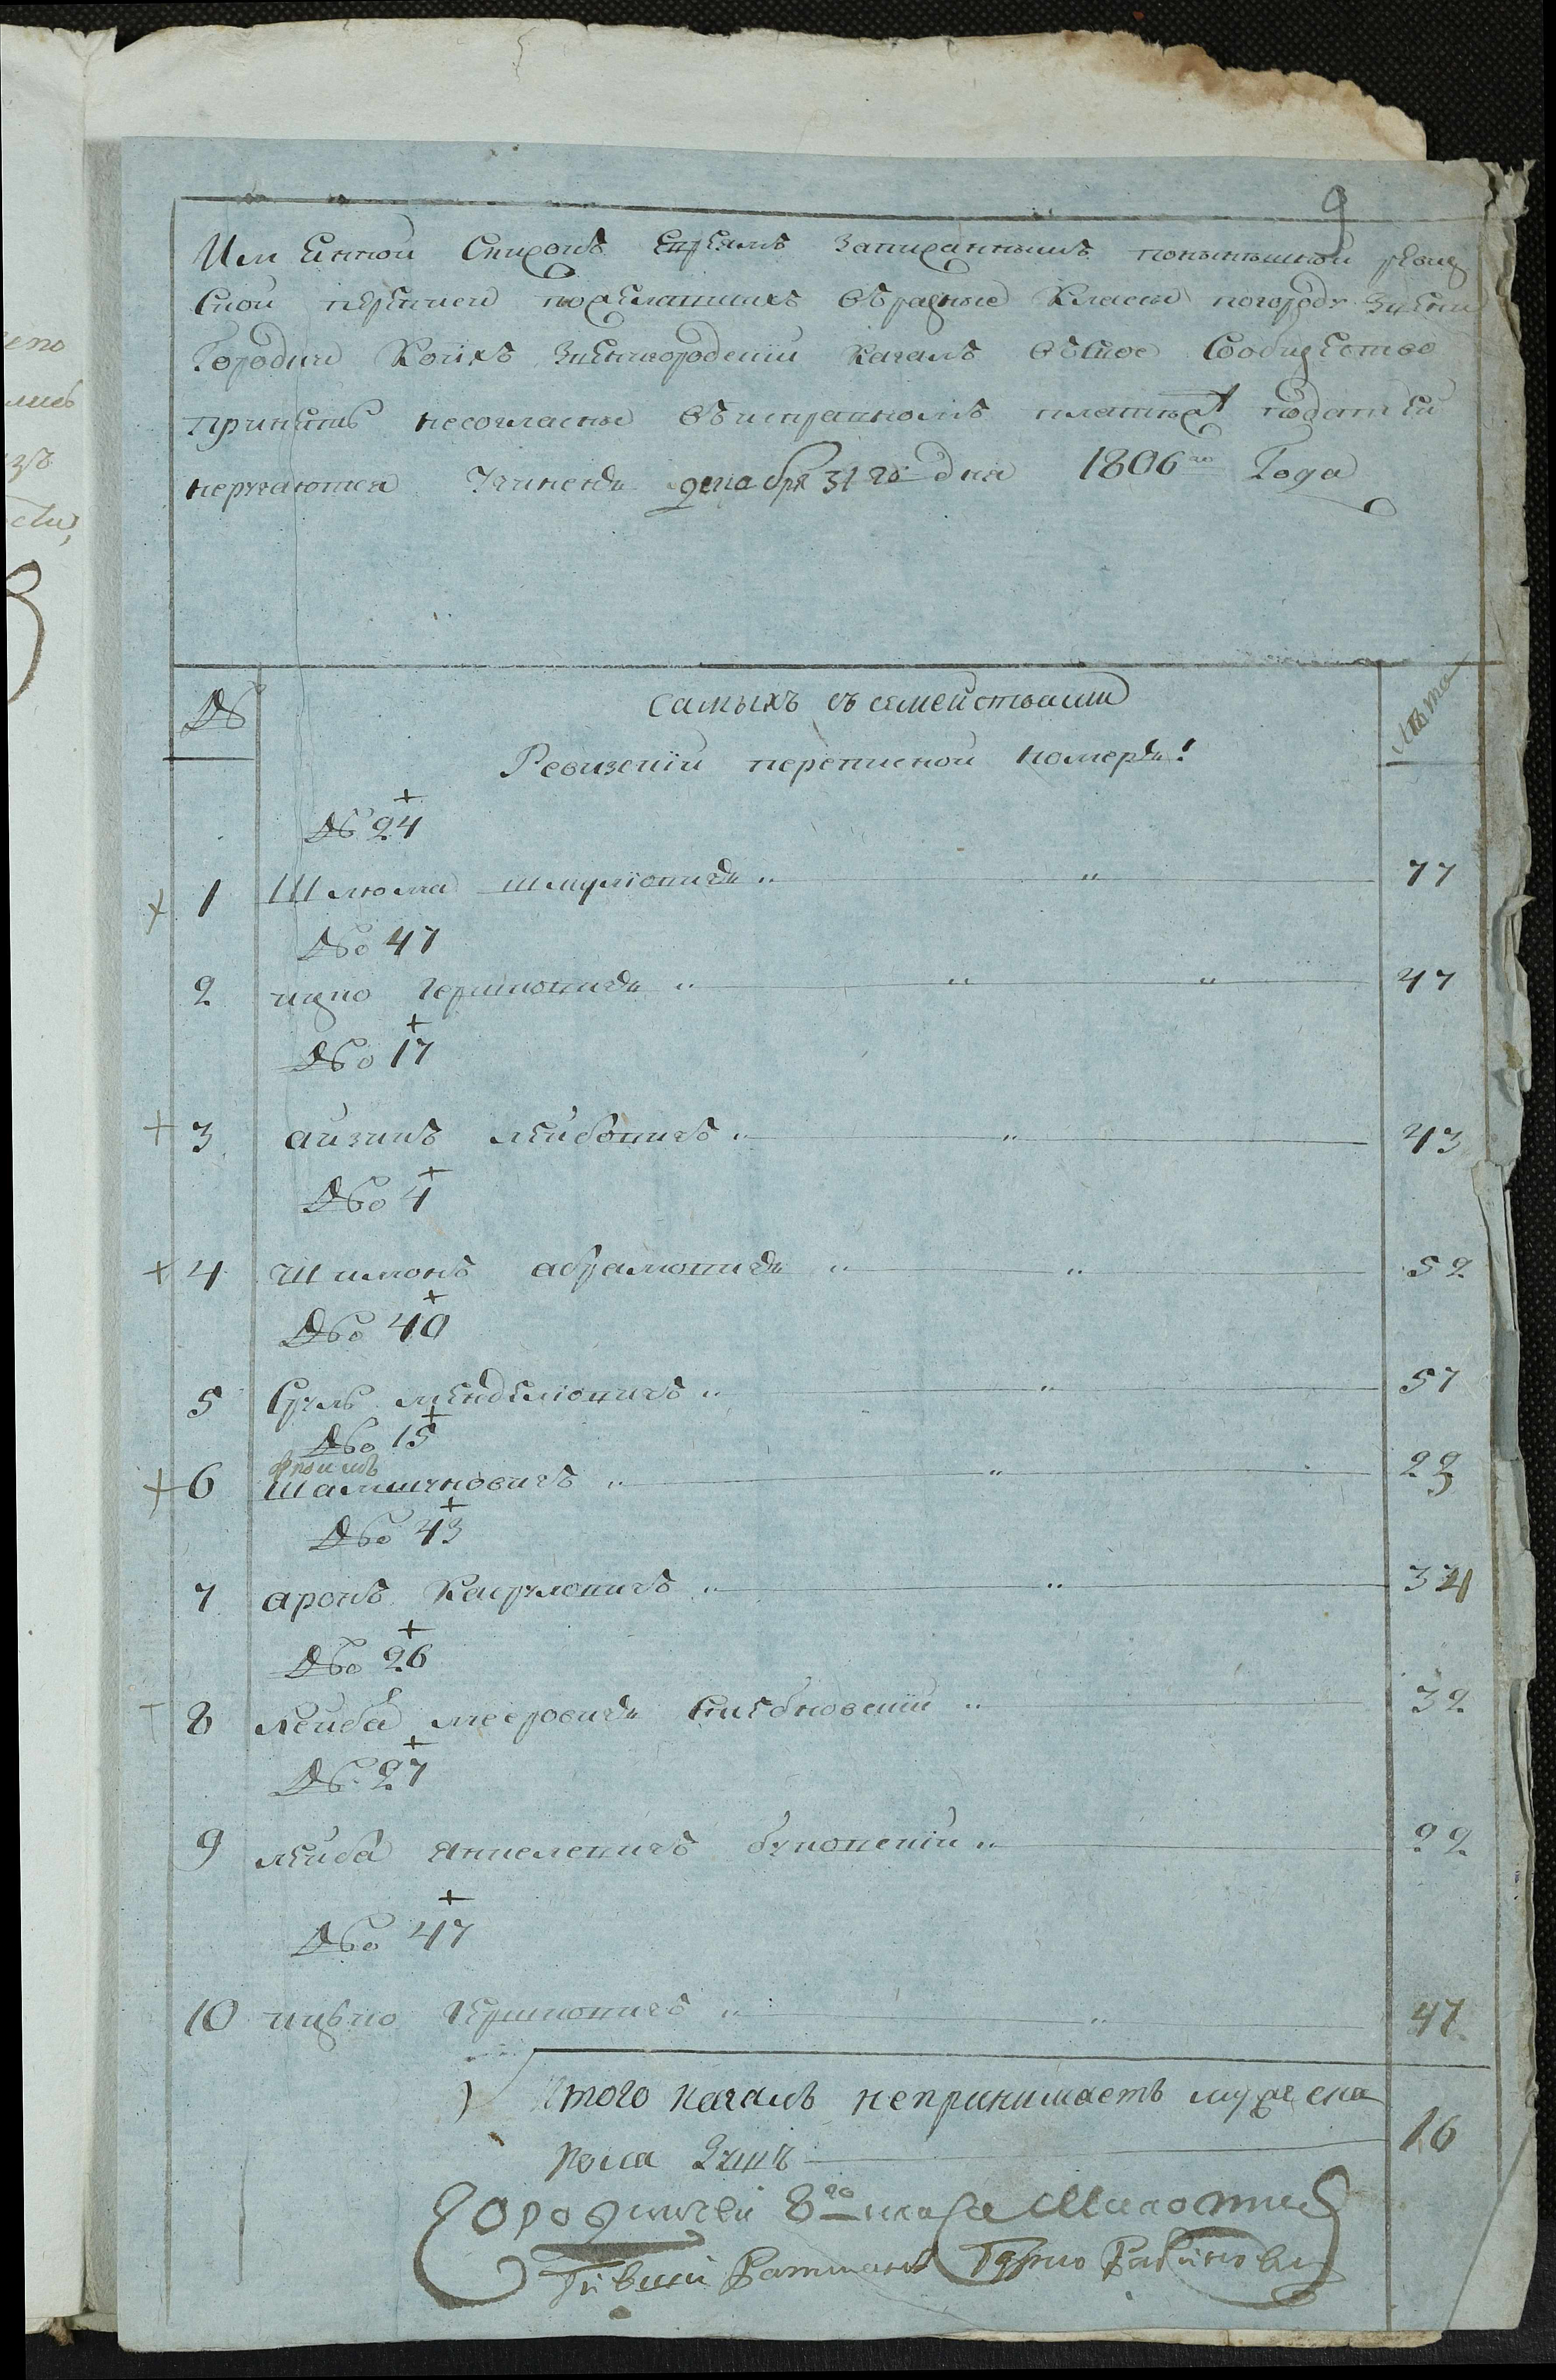 9
Имѣнной Списокъ Евреямъ Записаннымъ понынѣшной ревиз
ской перѣписи пожелавшихъ въ разные класы погороду Звени
Городки коихъ Звенигородский кагалъ въ свое Сообщество
принять несогласны въ исправномъ платежѣ податѣй
неручаются Учиненъ декабря 31 го дня 1806го Года
№
самыхъ съ семействами
Лѣта
Ревизскій переписной номеръ:
№ 24
1 Шлиома Шмулiовичъ 77
№о 47
2 ицко Гершковичъ 47
№о 17
3 айзикъ лейбовичъ 43
№о 4
4 Шимонъ абрамовичъ 52
№о 40
5 Сруль мендѣлiовичъ 57
№о 15
фроимъ
6 Шамшуновичъ 23
№о 43
7 аронъ Касрилович 34
№о 26
8 лейба мееровичъ 32
№ 27
9 лѣйба Янкелевичъ буковскiй 22
№о 47
10 ицко Гершковичъ 47
Итого кагалъ непринимаетъ мужеска
пола душъ 16
Городничей 8го класа
ратманъ